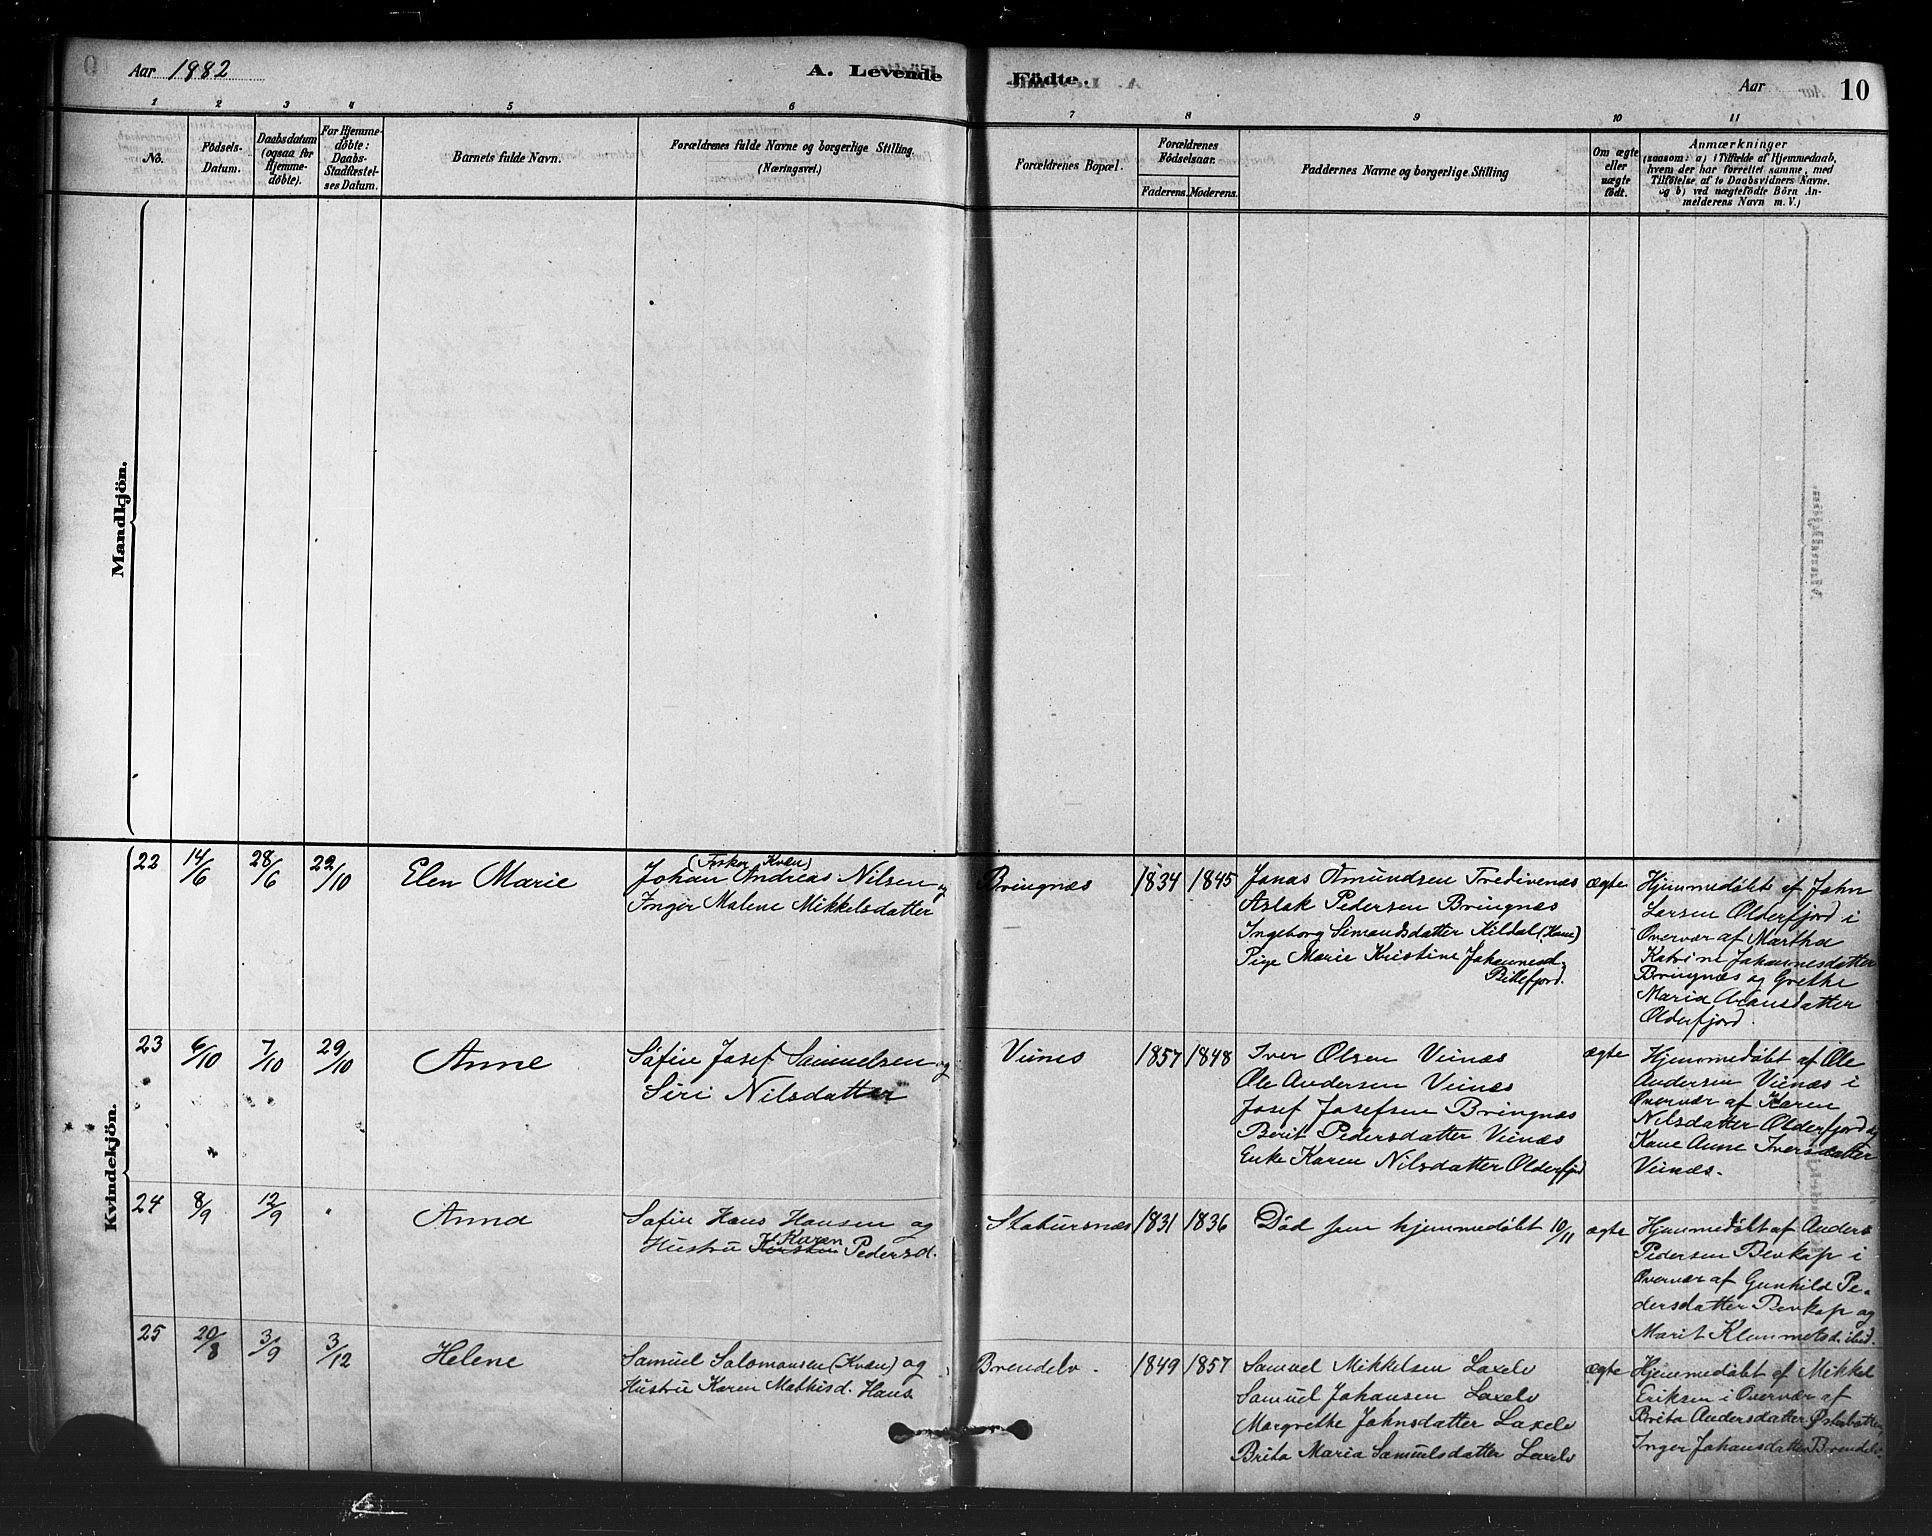 Aar 1882
A. Levende
Födte.
Aar
10
1 2 3 4 5 6 7 8 9 10 11
No.
Födsels-
Datum.
Daabsdatum
(ogsaa for
Hjemme-
döbte).
For Hjemme-
döbte:
Daabs-
Stadfæstel-
ses Datum.
Barnets fulde Navn.
Forældrenes fulde Navne og borgerlige Stilling.
(Næringsvei.)
Forældrenes Bopæl.
Forældrenes
Födselsaar.
Faderens. Moderens.
Faddernes Navne og borgerlige Stilling
Om ægte
eller
uægte
födt.
Anmærkninger
(saasom: a) i Tilfælde af Hjemmedaab,
hvem der har forrettet samme, med
Tilföielse af to Daabsvidners Navne.
og b) ved uægtefödte Börn An-
melderens Navn m. V.)
Mandkjön.
Kvindekjön.
22 14/6 28/6 22/10
Elen Marie
(Fisker Kvæn)
Johan Andreas Nilsen og
Inger Malene Mikkelsdatter
Bringnæs
1834 1845
Jonas Amundsen Tredivenæs
Aslak Pedersen Bringnæs
Ingeborg Simonsdatter Kildal (Kone)
Pige Marie Kristine Johannesd.
Billefjord.
ægte
Hjemmedøbt af John
Larsen Olderfjord i
Overvær af Martha
Katrine Johannesdatter
Bringnæs og Grethe
Maria
Olderfjord.
23 6/10 7/10 29/10
Anne
Søfin Josef Samuelsen og
Siri Nilsdatter
Viinæs
1857 1848
Iver Olsen Veinæs
Ole Andersen Veinæs
Josef Josefsen Bringnæs
Berit Pedersdatter Veinæs
Enke Karen Nilsdatter Olderfjord
ægte
Hjemmedøbt af Ole
Andersen Vienæs i
Overvær af Karen
Nilsdatter Olderfjord og
Kone Anne Iversdatter
Veinæs.
24 8/9 12/9 "
Anna
Søfin Hans Hansen og
Karen
Hustru Kirsten Pedersd.
Stabursnæs
1831 1836
Død som hjemmedøbt 10/11
ægte
Hjemmedøbt af Anders
Pedersen Bevkop i
Overvær af Gunhild Pe-
dersdatter Bevkop og
Marit Klemmetsd. ibid.
25 20/8 3/9 3/12
Helene
Samuel Salomonsen (Kvæn) og
Hustru Karen Mathisd. Hans
Brendelv.
1849 1857
Samuel Mikkelsen Laxelv
Samuel Johansen Laxelv
Margrethe Johnsdatter Laxelv
Brita Maria Samuelsdatter Laxelv
ægte
Hjemmedøbt af Mikkel
Eriksen i Overvær af
Brita Andersdatter Østerbotten,
Inger Johansdatter Brendelv.